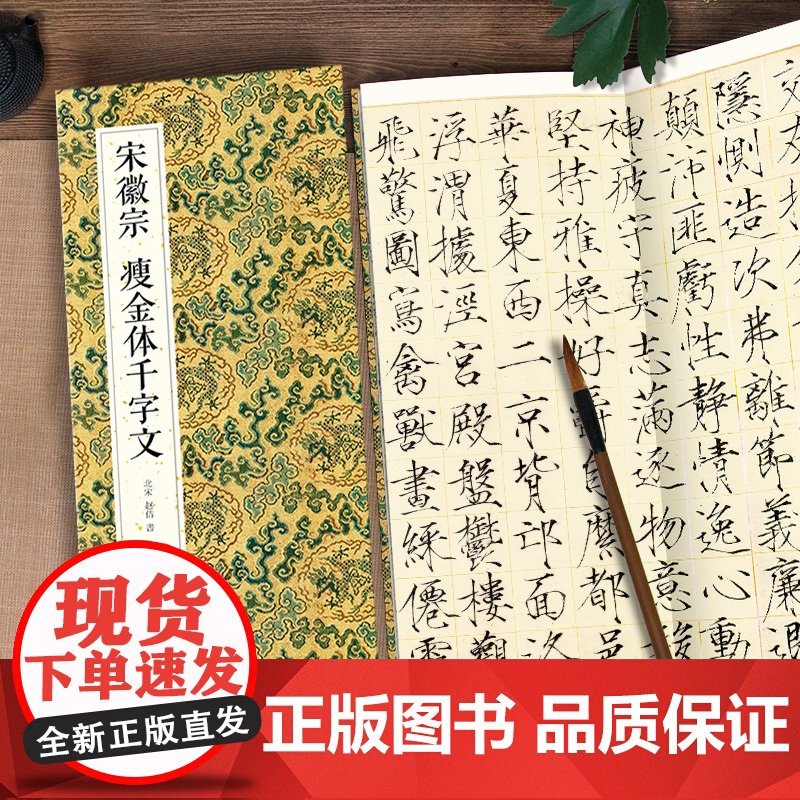 宋徽宗 瘦金体千字文
北宋 赵佶 書
交友投
隱惻造次弗離節義廉退
顛沛匪虧性靜情逸心動
神疲守真志滿逐物意移
堅持雅操好爵自縻都邑
華夏東西二京背邙面洛
浮渭據涇宮殿盤鬱樓觀
飛驚圖寫禽獸畫綵僊靈
现货
下单速发
全新正版直发
正版图书 品质保证